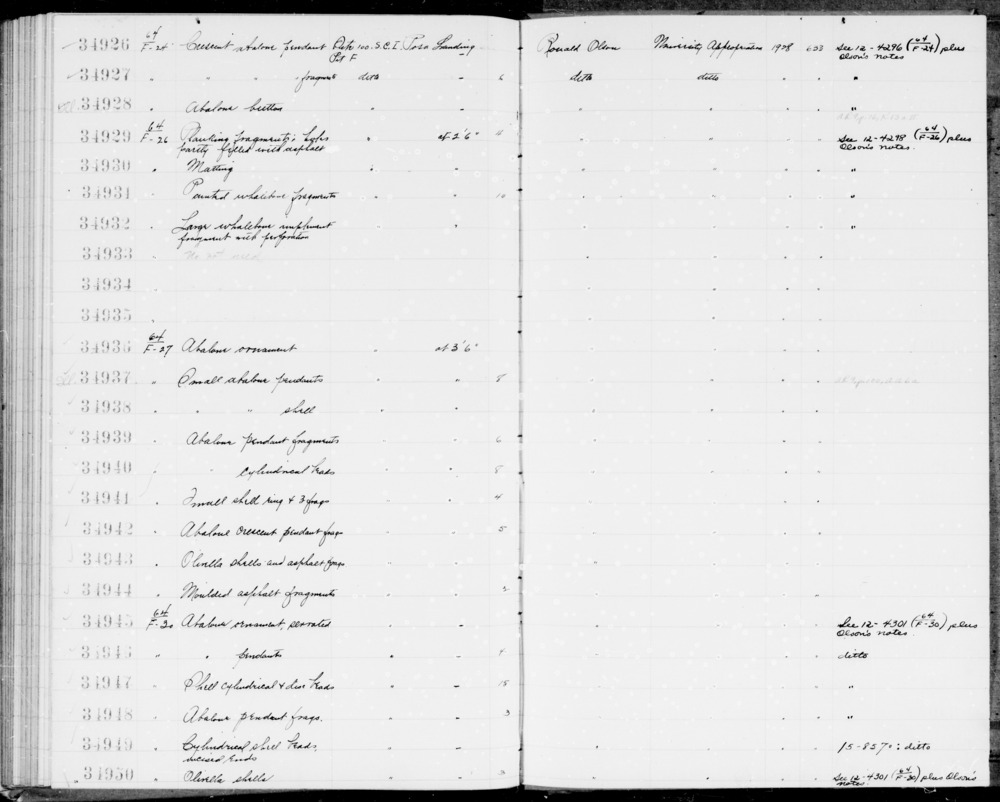 34926 64/F-24 Crescent abalone pendant Site 100. S.C.I. Posa Landing Ronald Olson University Appropriation 1928 633 See 12-4296 (64/F-24) plus
Pit F Olson's notes
34927 " " " fragment ditto " - 6 ditto ditto " " "
34928 " Abalone button " - " " " " "
34929 64/F-26 Planking fragments; holes " at 2'6" 4 " " " " See 12-4298 (64/F-26) plus
partly filled with asphalt Olson's notes.
34930 " Matting " " " " " " "
34931 " Painted whalebone fragments " " 10 " " " " "
34932 " Large whalebone implement " " " " " " "
fragment with perforation
34933 No not used
34934
34935
34936 64/F-27 Abalone ornament " at 3'6" " " " "
34937 " Small abalone pendants " " 8 " " " "
34938 " " " shell " " " " " "
34939 " Abalone pendant fragments " " 6 " " " "
34940 " " cylindrical beads " " 8 " " " "
34941 " Small shell ring + 3 frags " " 4 " " " "
34942 " Abalone crescent pendant frags " " 5 " " " "
34943 " Olivella shells and asphalt frags " " " " " "
34944 " Moulded asphalt fragments " " 2 " " " "
34945 64/F-30 Abalone ornament, serrated " - " " " " See 12-4301 (64/F-30) plus
Olson's notes
34946 " " pendants " - 4 " " " " ditto
34947 " Shell cylindrical + disc beads " - 15 " " " " "
34948 " Abalone pendant frags. " - 3 " " " " "
34949 " Cylindrical shell beads, " - " " " " 15-8570: ditto
incised ends
34950 " Olivella shells " - 3 " " " " See 12-4301 (64/F-30) plus Olson's
notes.